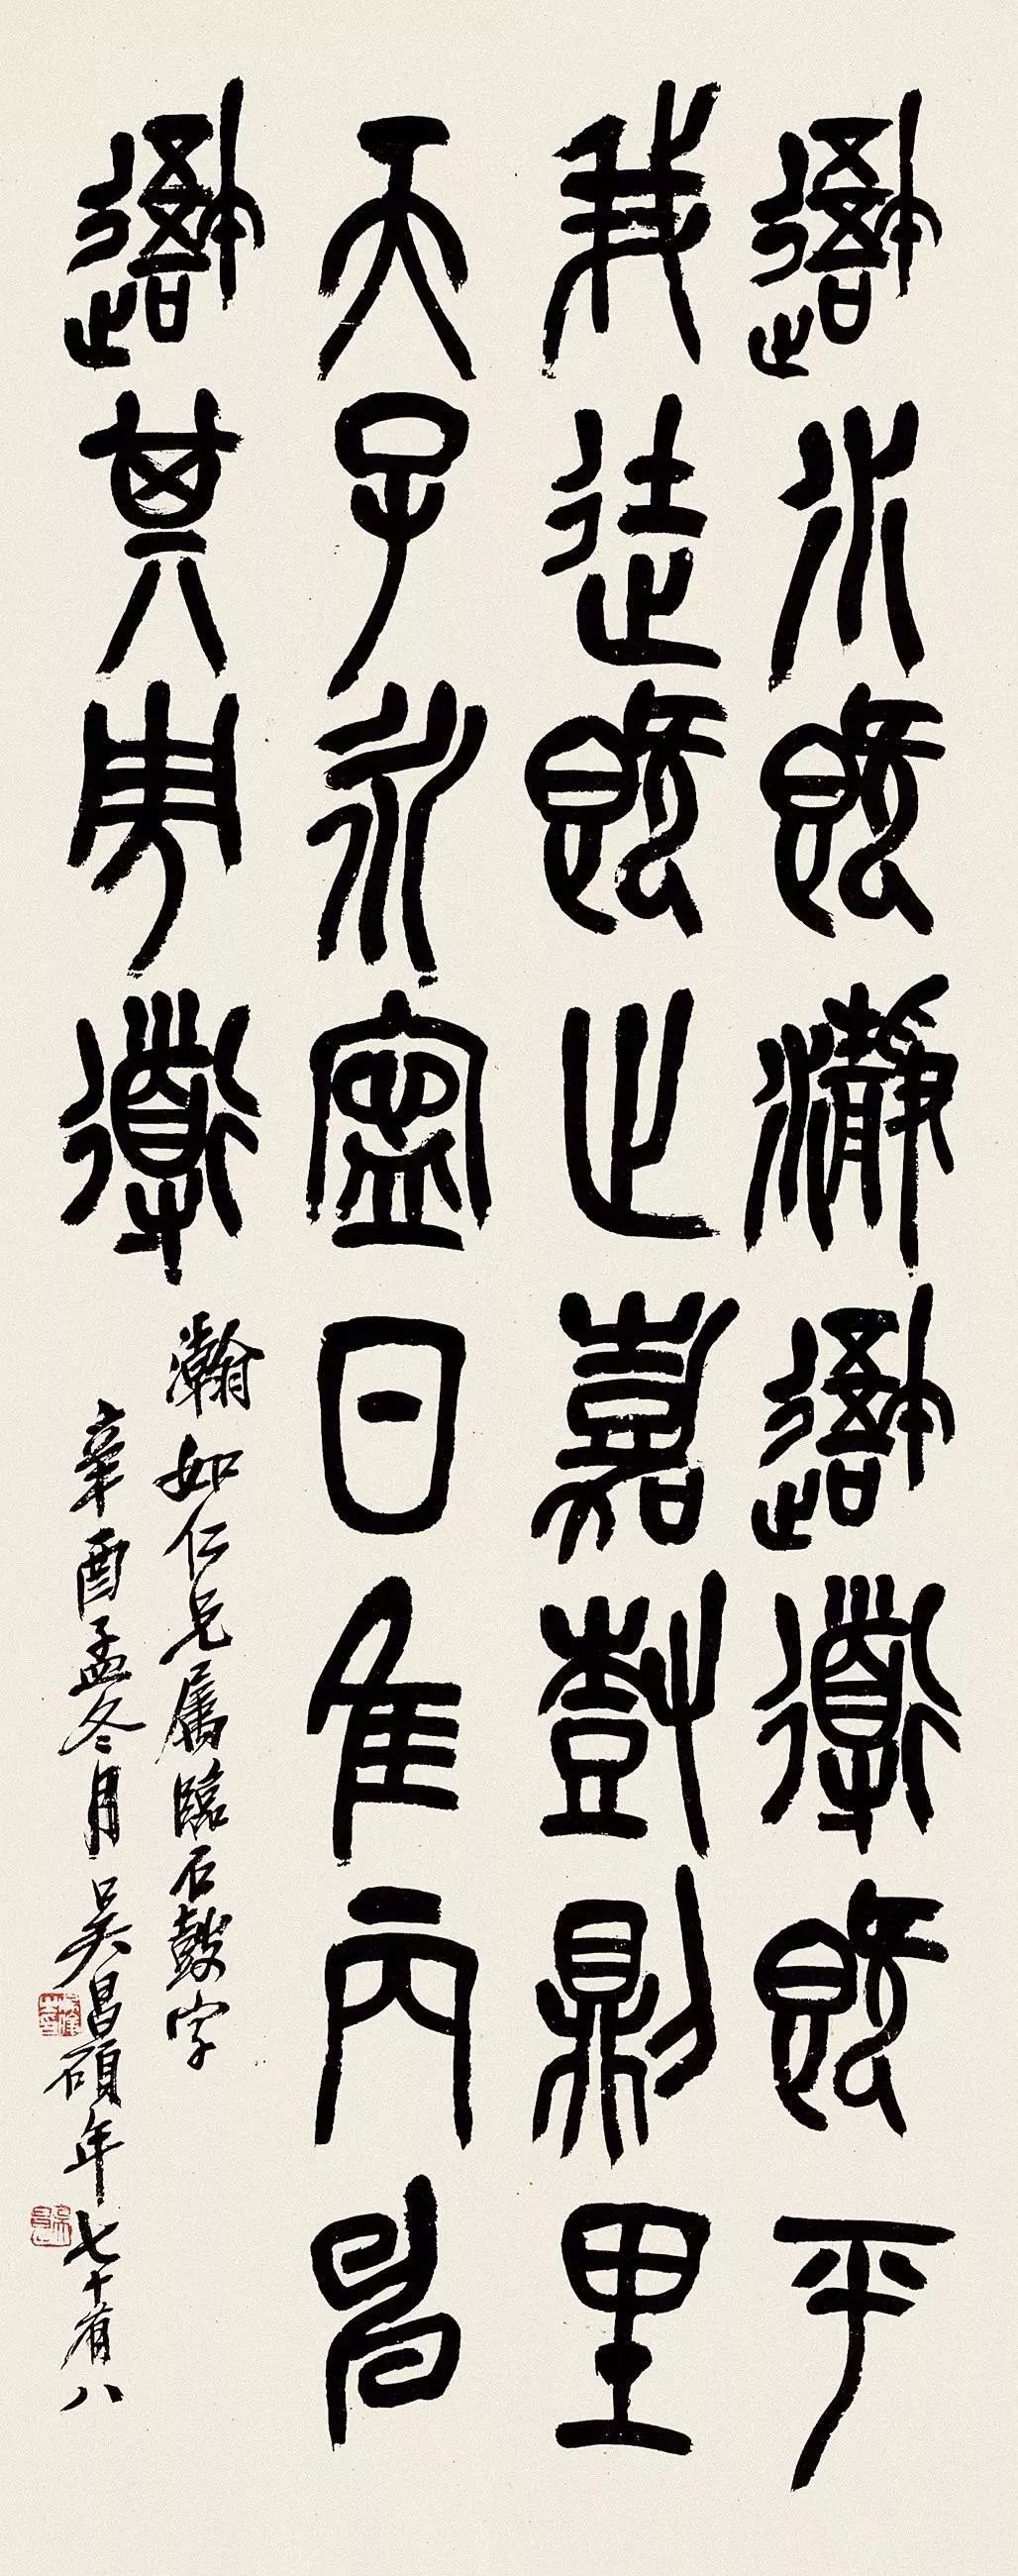 吾水既瀞吾導既平
我徒既止嘉尌則里
天子永寍日隹丙申
吾其用導
瀚如仁兄屬臨石鼓字
辛酉孟冬月吳昌碩年七十有八